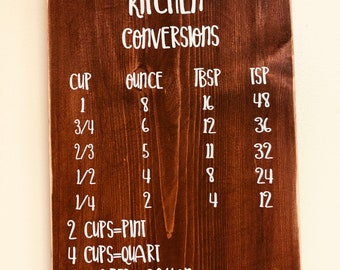 KITCHEN
CONVERSIONS
CUP OUNCE TBSP TSP
1 8 16 48
3/4 6 12 36
2/3 5 11 32
1/2 4 8 24
1/4 2 4 12
2 CUPS=PINT
4 CUPS=QUART